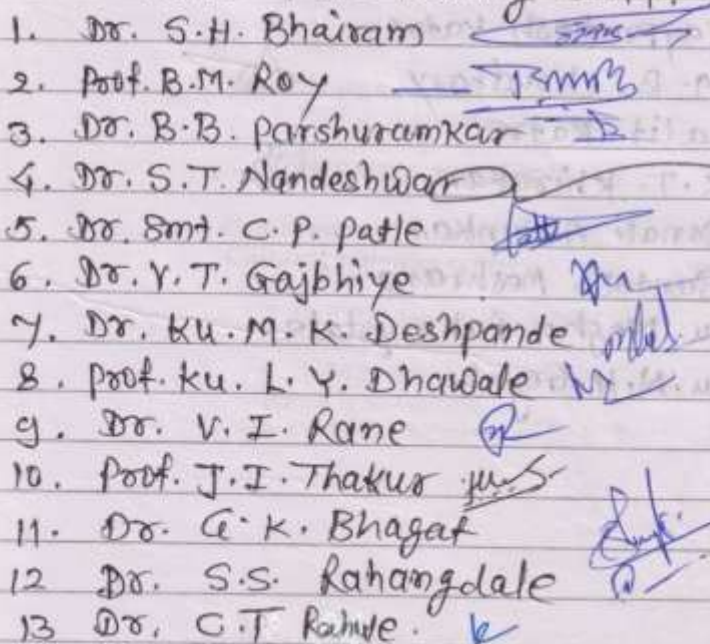 1. Dr. S.H. Bhairam
2. Prof. B.M. Roy
3. Dr. B.B. Parshuramkar
4. Dr. S.T. Nandeshwar
5. Dr. Smt. C.P. Patle
6. Dr. V.T. Gajbhiye
7. Dr. Ku. M.K. Deshpande
8. Prof. Ku. L.Y. Dhawale
9. Dr. V.I. Rane
10. Prof. J.I. Thakur
11. Dr. G.K. Bhagat
12 Dr. S.S. Rahangdale
13 Dr. C.T